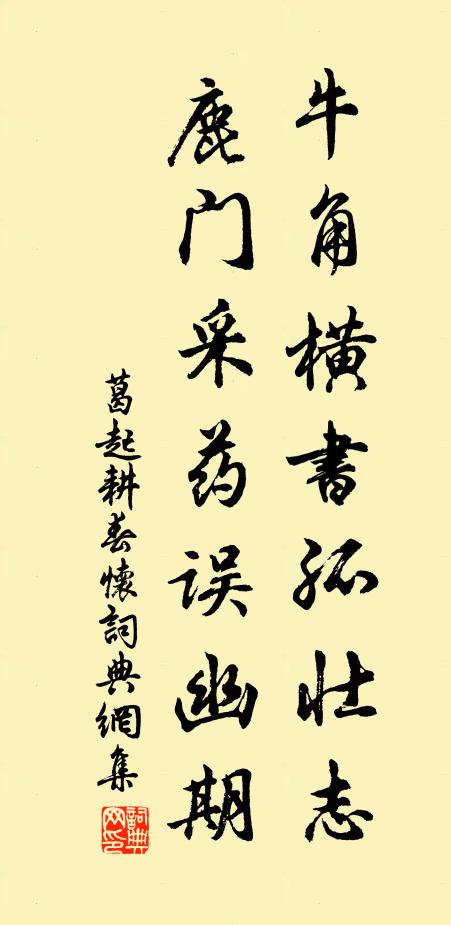 牛角横書孤壮志
鹿门采药误幽期
葛起耕春懷詞典網集
詞典
网印